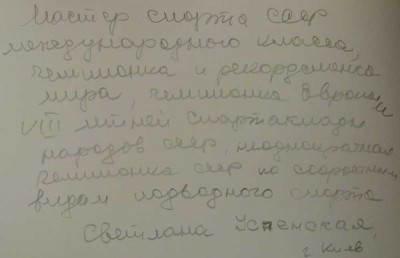 Мастер спорта СССР
международного класса,
чемпионка и рекордсменка
мира, чемпионка Европы и
VIII летней спартакиады
народов СССР, неоднократная
чемпионка СССР по скоростным
видам подводного спорта
Светлана Успенская,
г. Киев